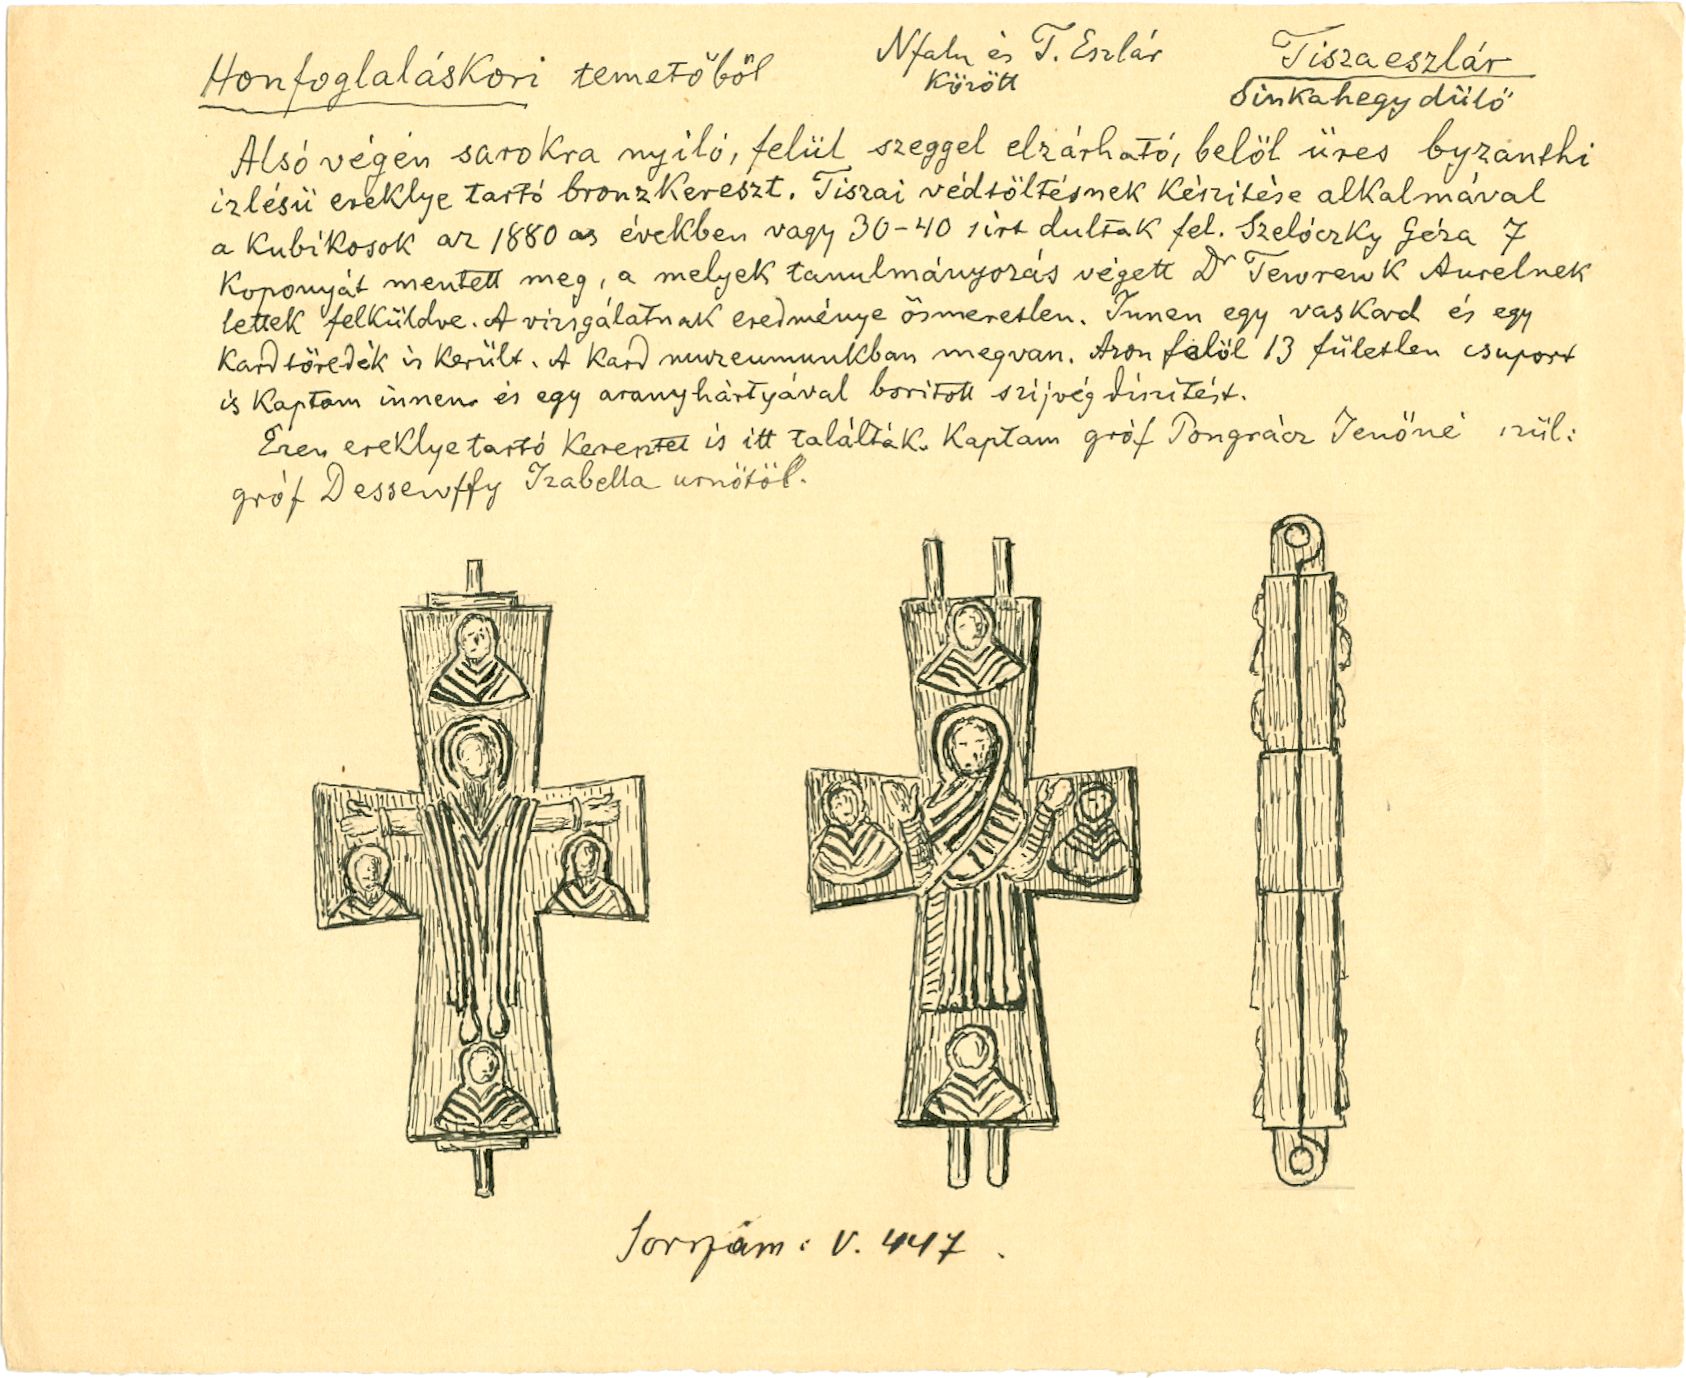 Honfoglaláskori temetőből
Nfalu és T. Eszlár
Között
Tiszaeszlár
Sinkahegy dülő
Alsó végén sarokra nyiló, felül szeggel elzárható, belöl üres byzanthi
izlésü ereklye tartó bronzkereszt. Tiszai védtöltésnek készitése alkalmával
a kubikosok az 1880 as években vagy 30-40 sirt dultak fel. Szelóczky Géza 7
koponyát mentett meg, a melyek tanulmányozás végett Dr Tewrewk Aurelnek
lettek felküldve. A vizsgálatnak eredménye ösmeretlen. Innen egy vaskard és egy
kardtöredék is került. A kard muzeumunkban megvan. Azon felöl 13 fületlen csuport
is kaptam innen és egy aranyhártyával boritott szijvég diszitést.
Ezen ereklyetartó keresztet is itt találták. Kaptam gróf Pongrácz Jenőné szül:
gróf Dessewffy Izabella urnötöl.
Sorszám: V. 447.